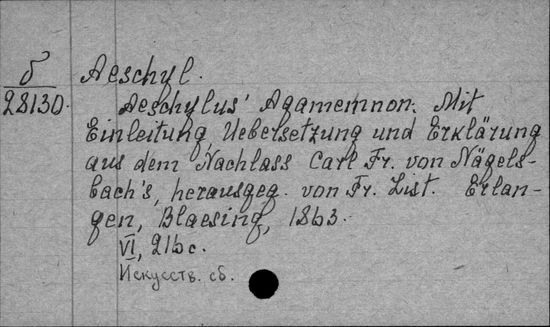 б
28130.
Aeschyl.
Aeschylus' Agamemnon. Mit
Einleitung, Uebersetzung und Erklärung
aus dem Nachlass Carl Fr. von Nägels-
bach's, herausgeg. von Fr. List. Erlan-
gen, Blaesing, 1863.
VI, 216 c.
Искусств. сб.